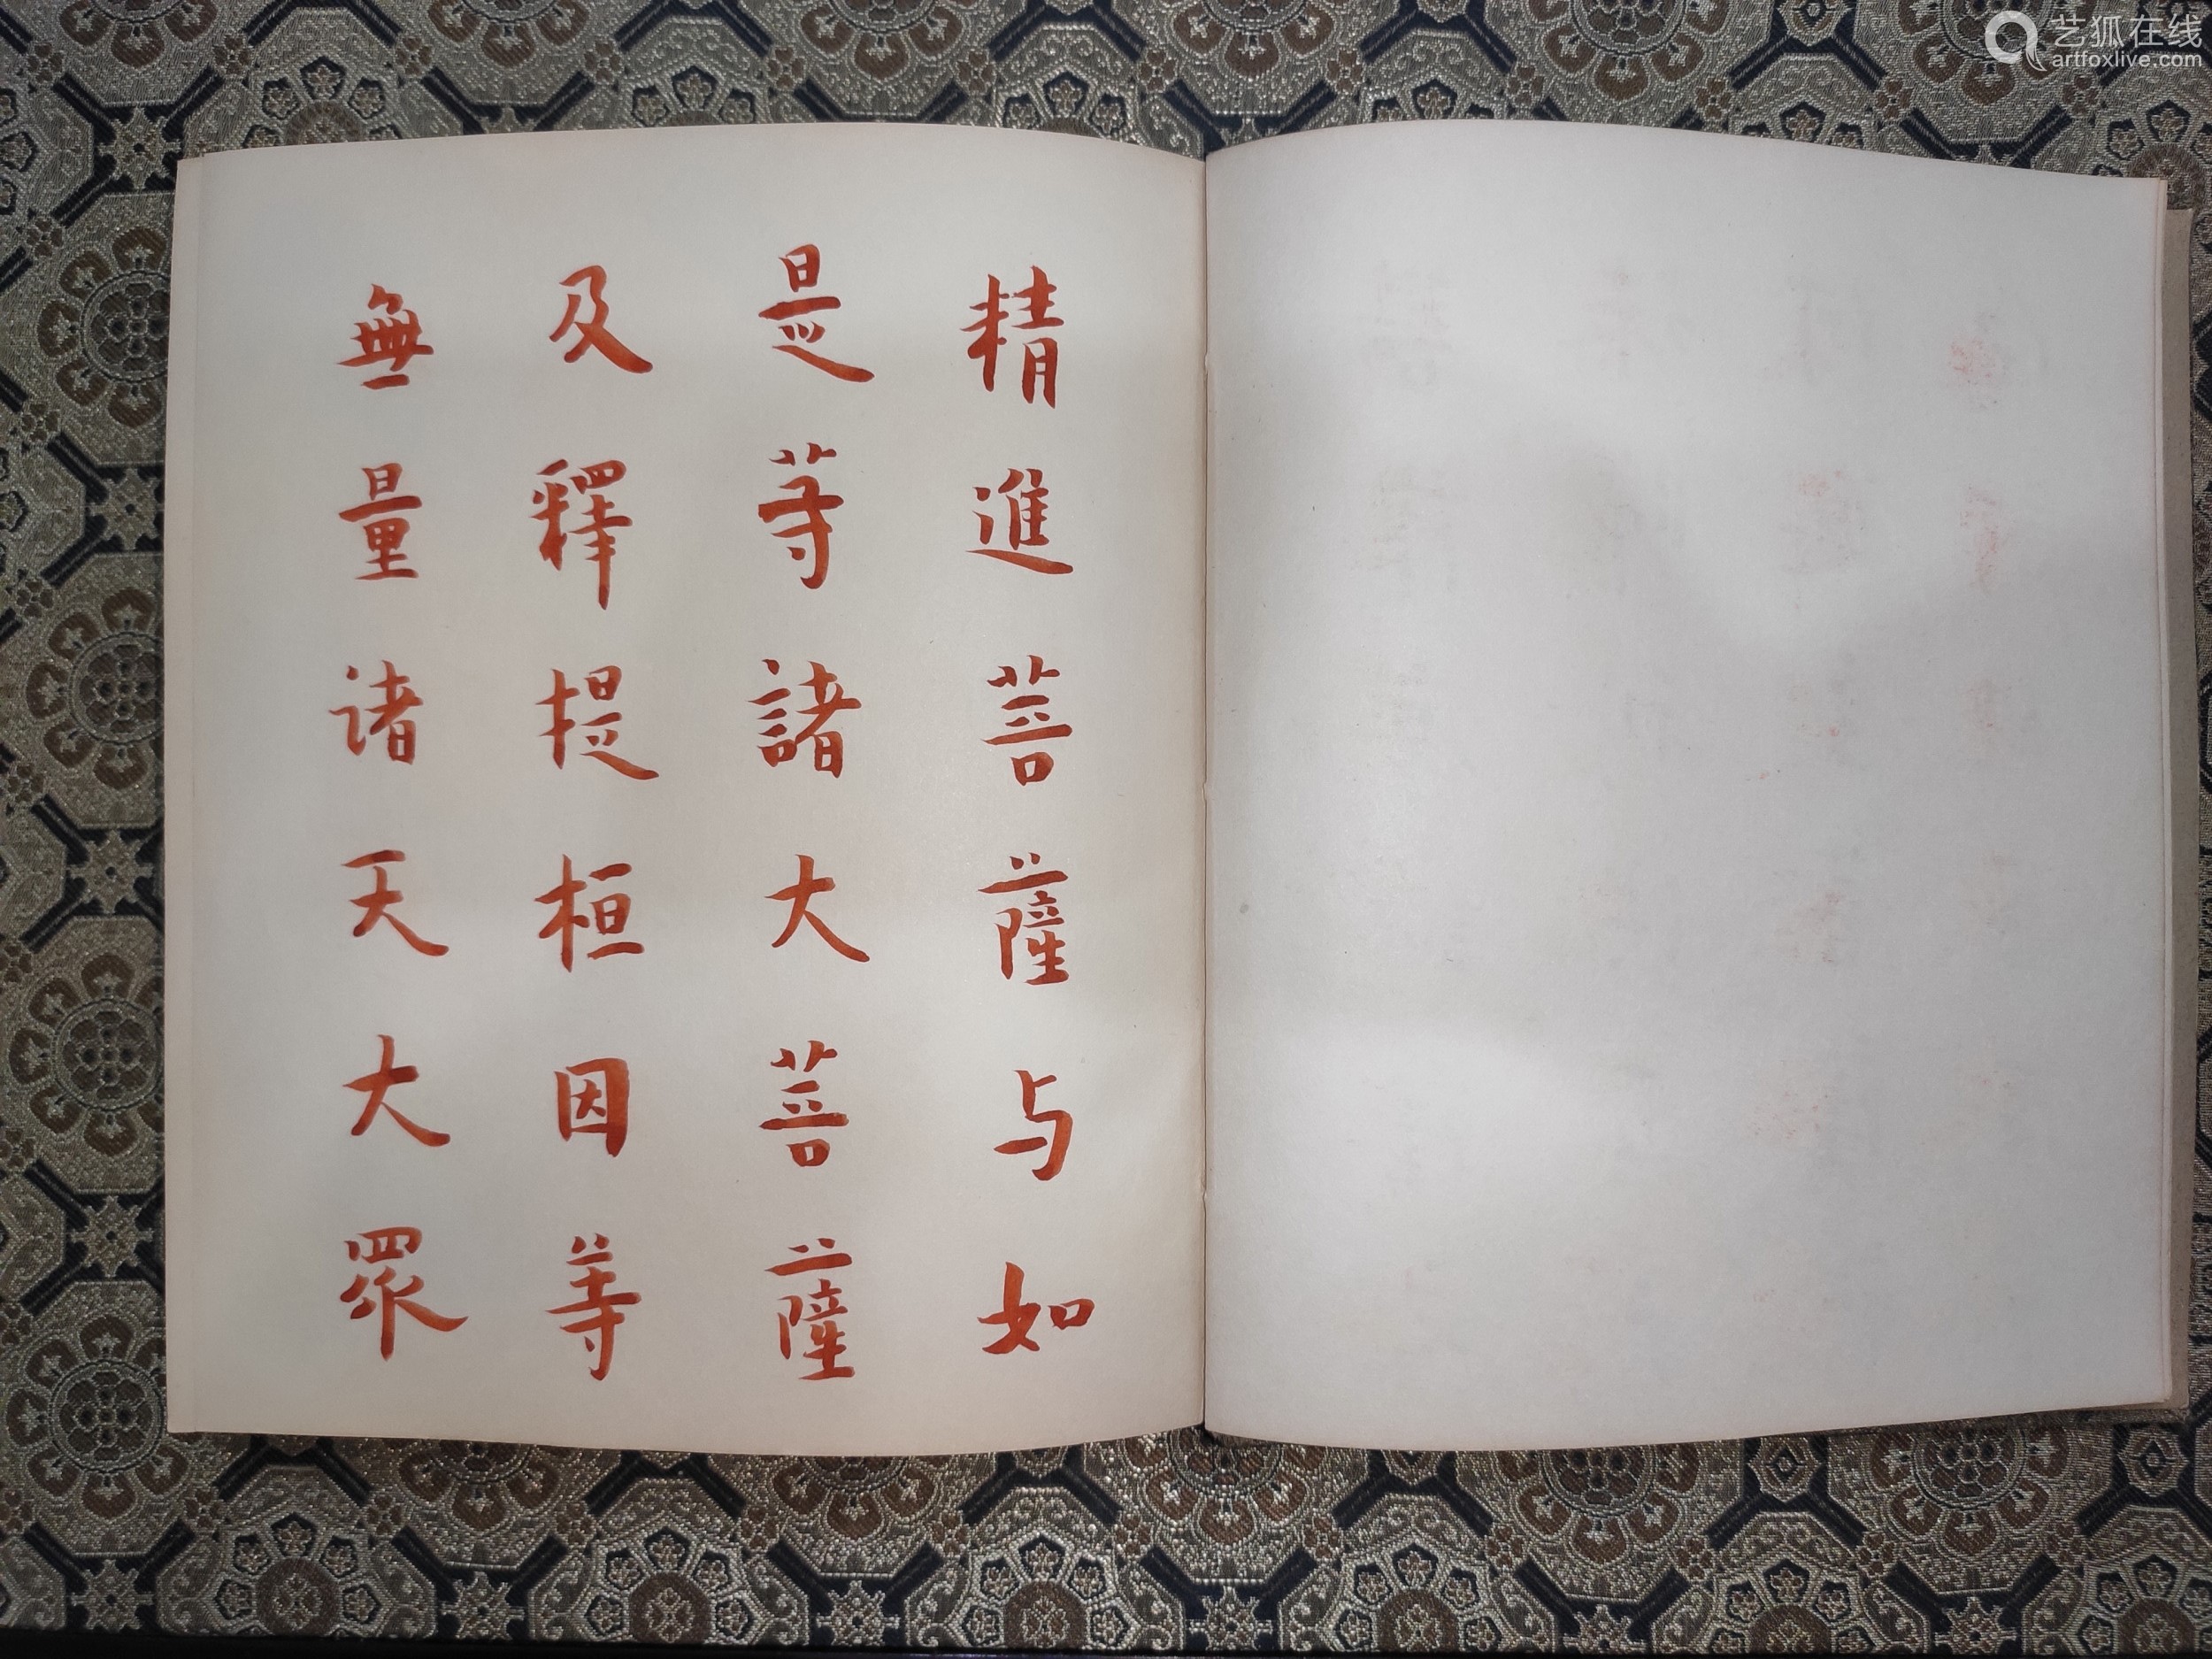 精進菩薩与如
是等諸大菩薩
及釋提桓因等
無量诸天大眾
艺狐在线
artfoxlive.com